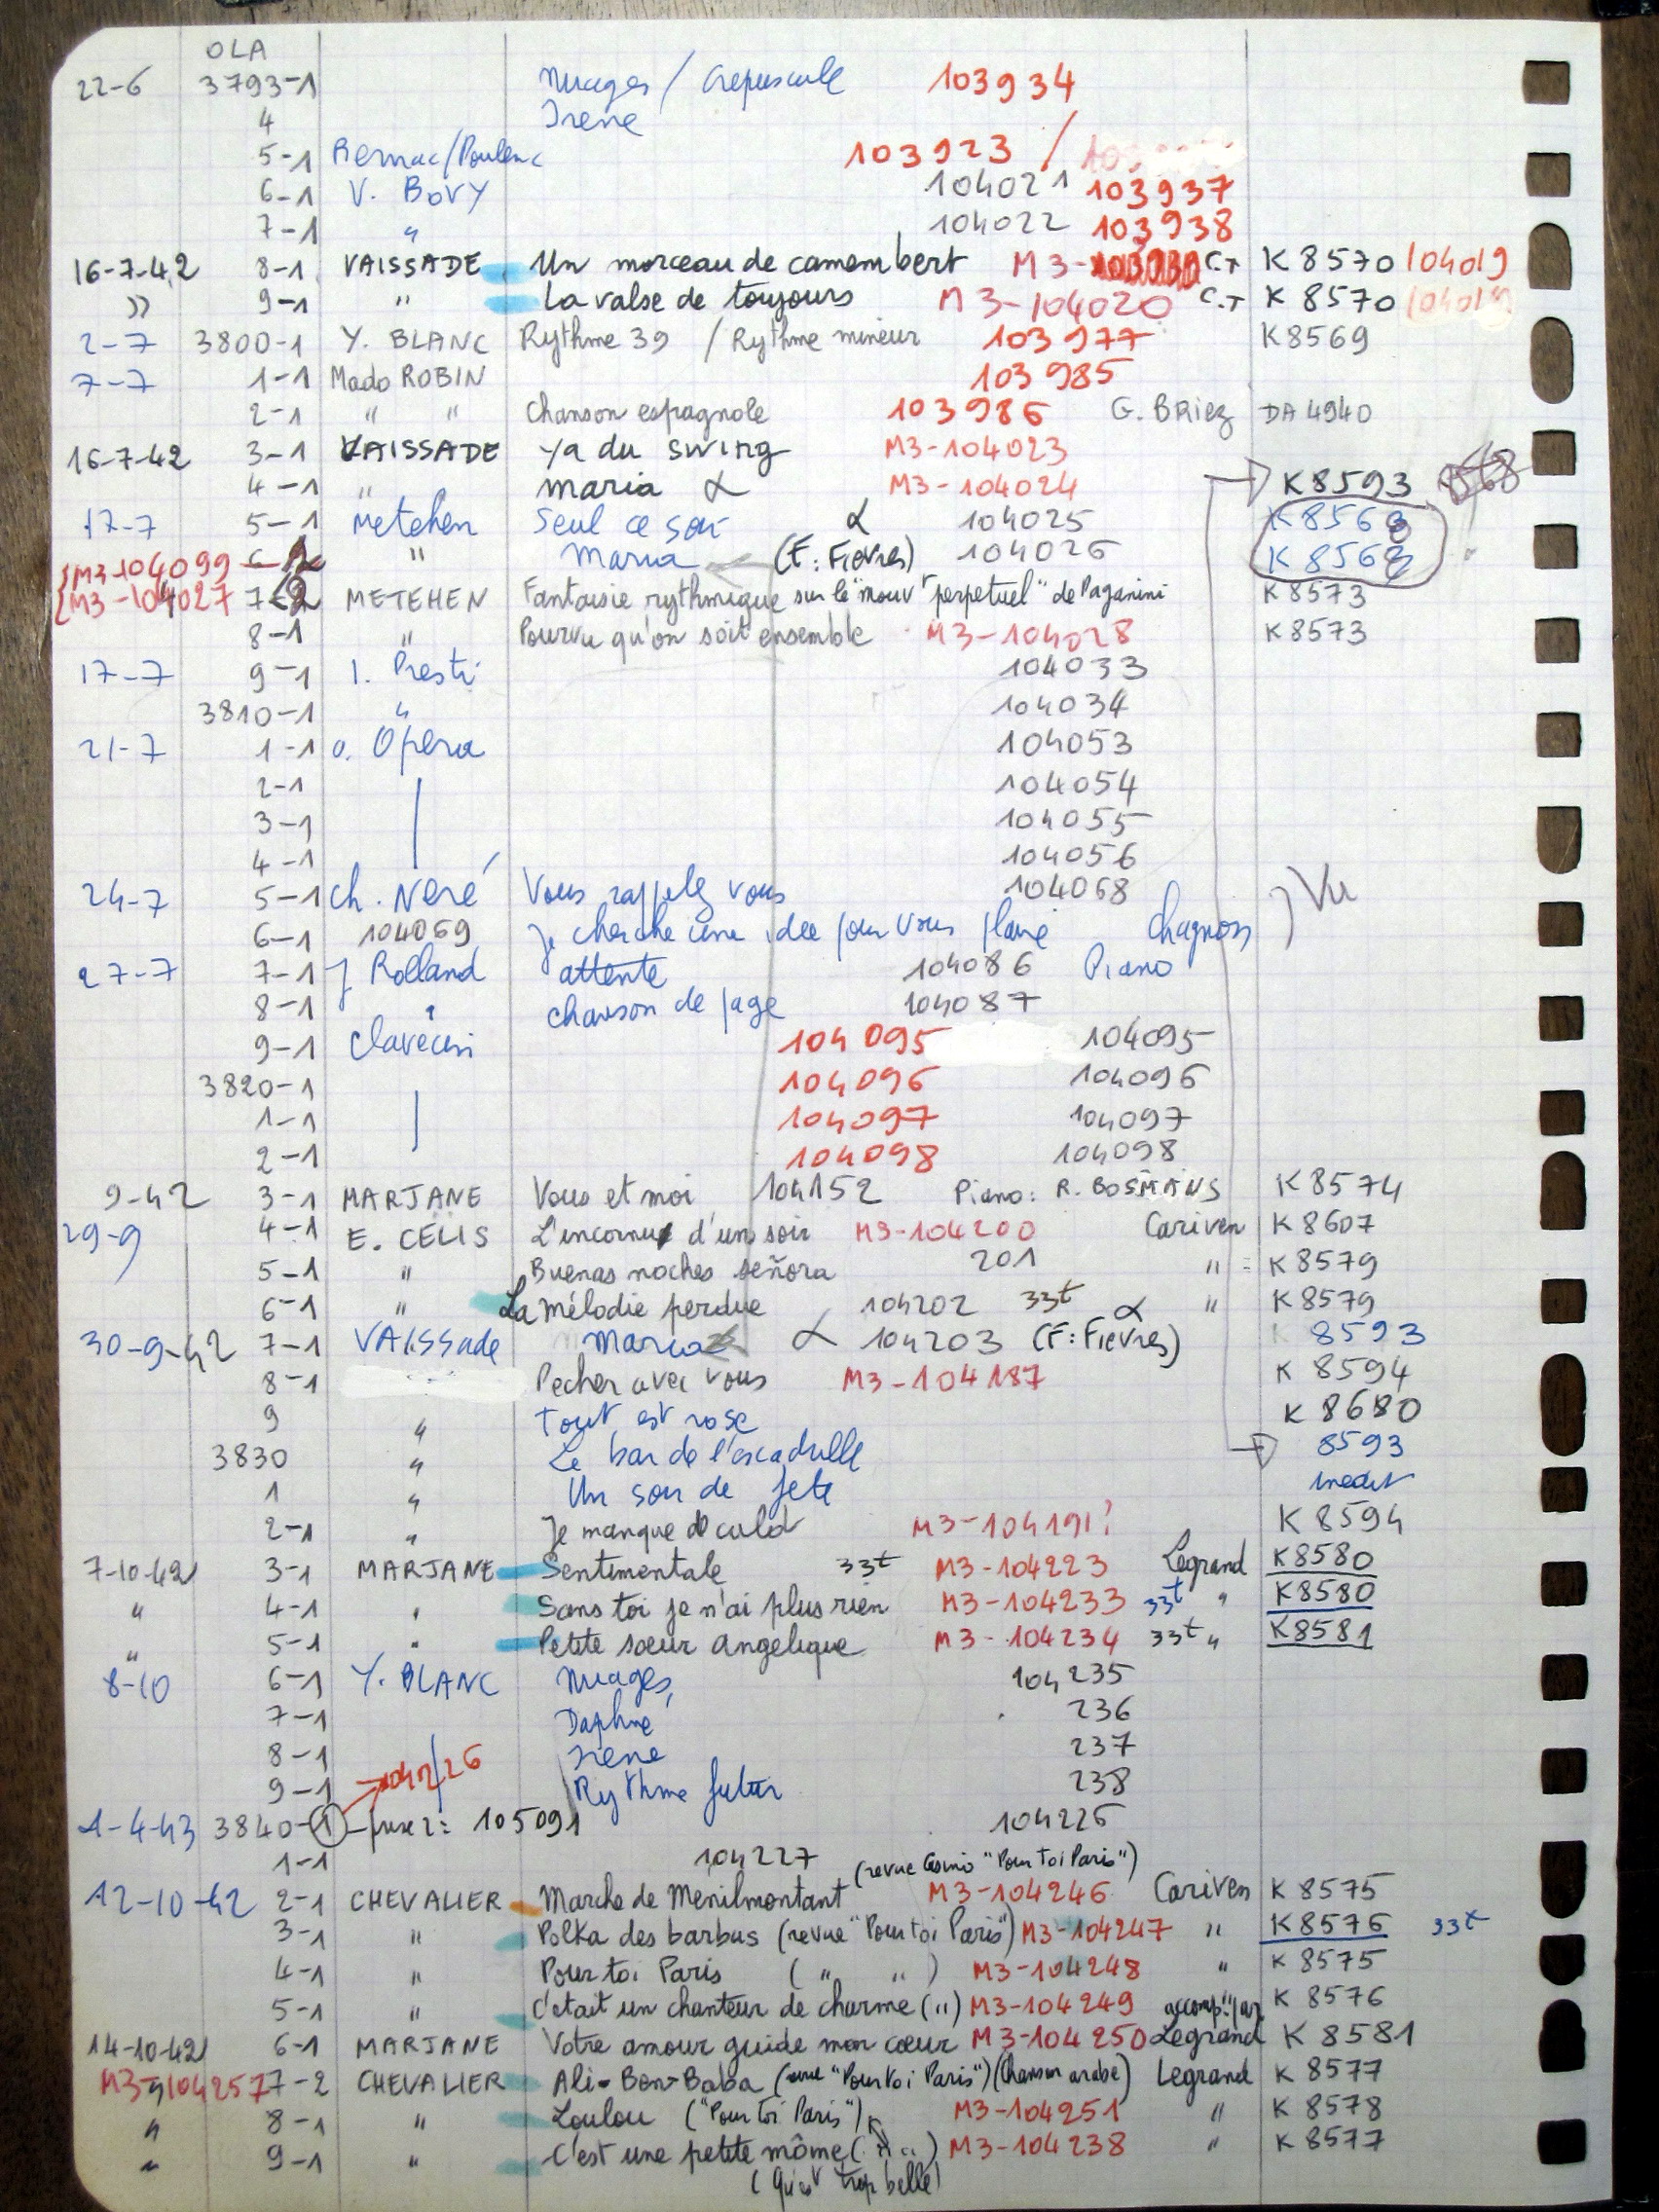 OLA
22-6 3793-1 Nuages / Crepuscule 103934
4 Irene
5-1 Bernac/Poulenc 103923 /
6-1 V. BOVY 104021 103937
7-1 " 104022 103938
16-7-42 8-1 VAISSADE Un morceau de camembert M3- C.T K 8570 104019
" 9-1 " La valse de toujours M3-104020 C.T K 8570 104019
2-7 3800-1 Y. BLANC Rythme 39 / Rythme mineur 103977 K8569
7-7 1-1 Mado ROBIN 103985
2-1 " " Chanson espagnole 103986 G. BRiez DA 4940
16-7-42 3-1 VAISSADE Ya du swing M3-104023
4-1 " maria α M3-104024 K8593
17-7 5-1 Metehen Seul ce soir α 104025 K8568
M3-104099 6-2 " Maria (F: Fievres) 104026 K8568
M3-104027 7-2 METEHEN Fantaisie rythmique sur le "mouvt perpetuel" de Paganini K8573
8-1 " Pourvu qu'on soit ensemble M3-104028 K8573
17-7 9-1 I. Presti 104033
3810-1 " 104034
21-7 1-1 o. Opera 104053
2-1 104054
3-1 104055
4-1 104056
24-7 5-1 Ch. Neré Vous rappelez vous 104068 } Vu
6-1 104069 Je cherche une idee pour vous plaire Chagnon
27-7 7-1 J Rolland attente 104086 Piano
8-1 " chanson de page 104087
9-1 Clavecin 104095 104095
3820-1 104096 104096
1-1 104097 104097
2-1 104098 104098
9-42 3-1 MARJANE Vous et moi 104152 Piano: R. BOSMANS K 8574
29-9 4-1 E. CELIS L'inconnu d'un soir M3-104200 Cariven K 8607
5-1 " Buenas noches señora 201 " = K 8579
6-1 " La mélodie perdue 104202 33t α " K 8579
30-9-42 7-1 VAISSade Maria α 104203 (F: Fievres) K 8593
8-1 Pecher avec vous M3-104187 K 8594
9 " Tout est rose K 8680
3830 " Le bar de l'escadrille 8593
1 " Un soir de fete inedit
2-1 " Je manque de culot M3-104191? K 8594
7-10-42 3-1 MARJANE Sentimentale 33t M3-104223 Legrand K8580
" 4-1 " Sans toi je n'ai plus rien M3-104233 33t " K8580
" 5-1 " Petite sœur angelique M3-104234 33t " K8581
8-10 6-1 Y. BLANC Nuages 104235
7-1 Daphné 236
8-1 Irene 237
9-1 104226 Rythme futur 238
1-4-43 3840-1 prise 2: 105091 104226
1-1 104227 (revue Casino "Pour toi Paris")
12-10-42 2-1 CHEVALIER Marche de Menilmontant M3-104246 Cariven K 8575
3-1 " Polka des barbus (revue "Pour toi Paris") M3-104247 " K 8576 33t
4-1 " Pour toi Paris ( " " ) M3-104248 " K 8575
5-1 " C'etait un chanteur de charme (") M3-104249 accomp. par K 8576
14-10-42 6-1 MARJANE Votre amour guide mon cœur M3-104250 Legrand K 8581
M3-104257 7-2 CHEVALIER Ali-Bon-Baba (revue "Pour toi Paris") (Chanson arabe) Legrand K 8577
" 8-1 " Loulou ("Pour toi Paris") M3-104251 " K 8578
" 9-1 " C'est une petite môme ( " " ) M3-104238 " K 8577
(Qu'est trop belle)